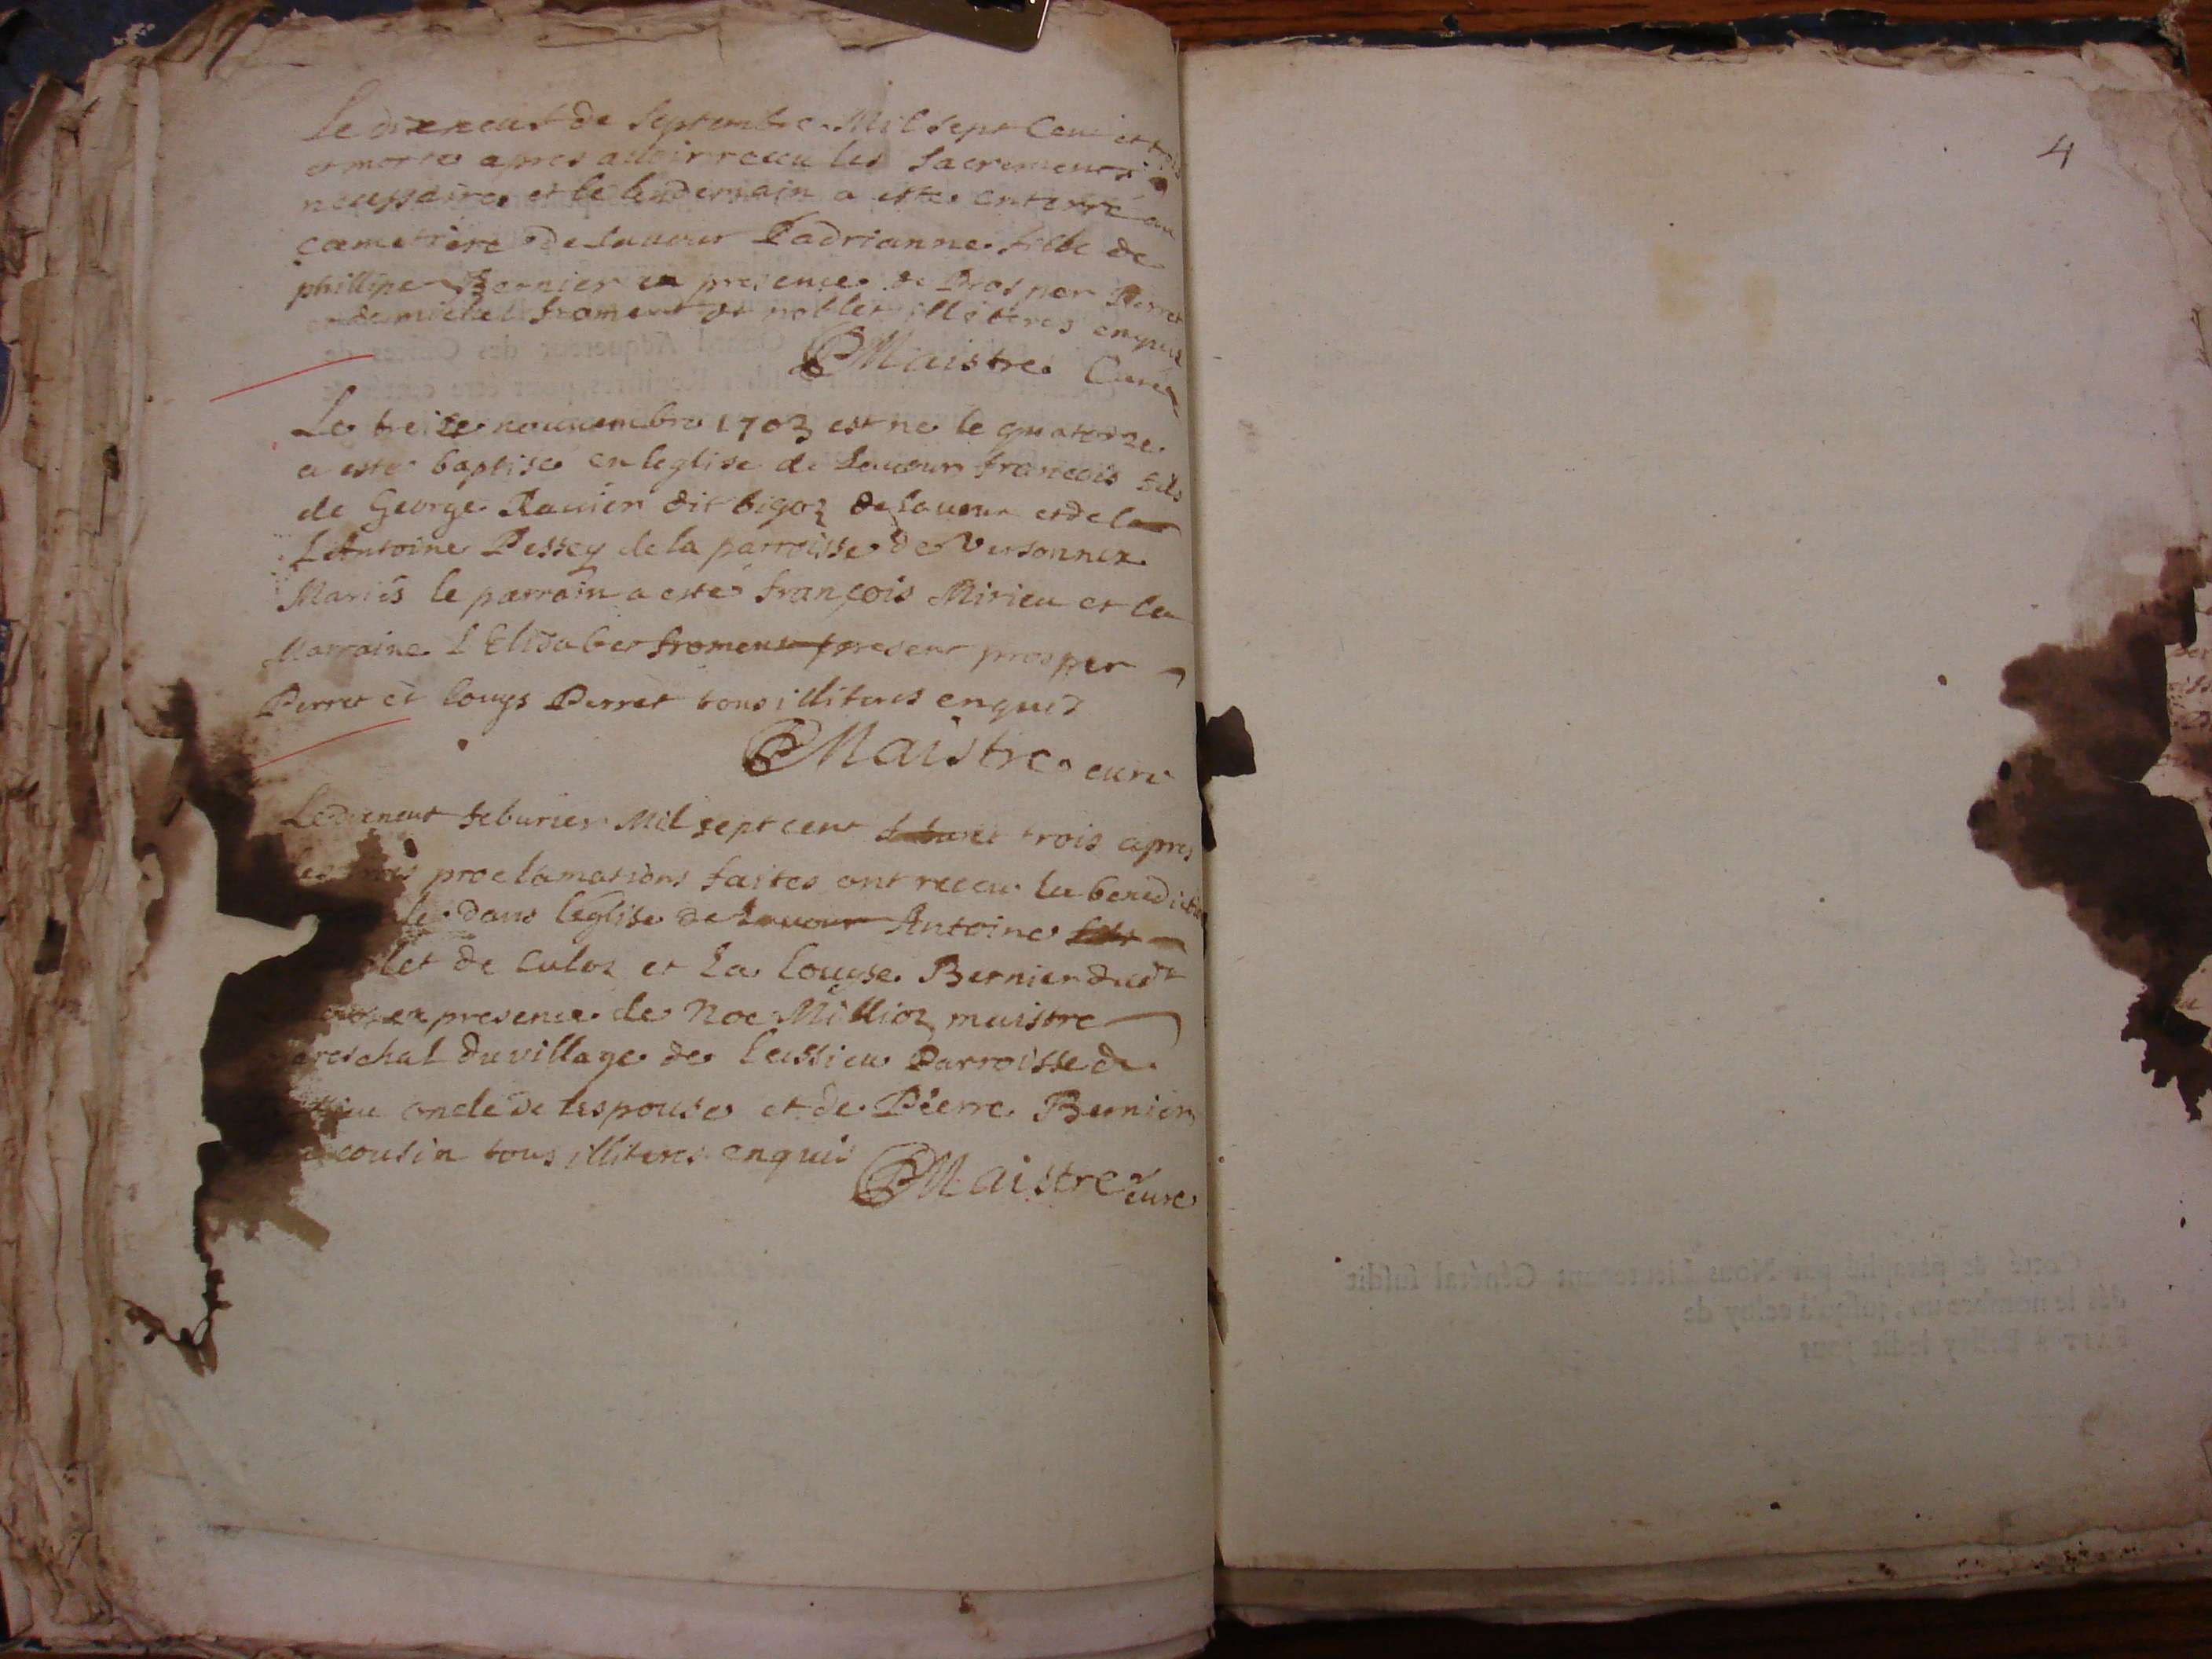 Le dixneuf de Septembre Mil sept Cent et trois
est morte apres avoir receu les sacrements
necessaires et le lendemain a este enterré au
cœmetiere de Lavour L'adrianne fille de
phillipe Bernier en presence de Prosper Perret
et de michel froment illiteres enquis
PMaistre Curé
Le treize nouvembre 1703 est né le quatorze
a este baptisé en leglise de Lavour francois fils
de George Ravier dit bigoz de lavour et de la
L'Antoine Pessey de la parroisse de Versonnex
Mariés le parrain a esté françois Mirieu et la
Marraine L'Elisabet froment present prosper
Perret et Louys Perret tous illiteres enquis
PMaistre curé
Le dixneuf feburier Mil sept cent et trois apres
les trois proclamations faites ont receu la benedict
le dans l'eglise de Lavour Antoine
let de Culoz et La Louyse Bernier dud^t
en presence de Noe Millioz maistre
mareschal du village de Leissieu Parroisse de
oncle de lespouse et de Pierre Bernier
cousin tous illiteres enquis
PMaistre curé
4
Cotté & paraphé par Nous Lieutenant Général susdit
dés le nombre un, jusqu'à celuy de
FAIT à Belley ledit jour